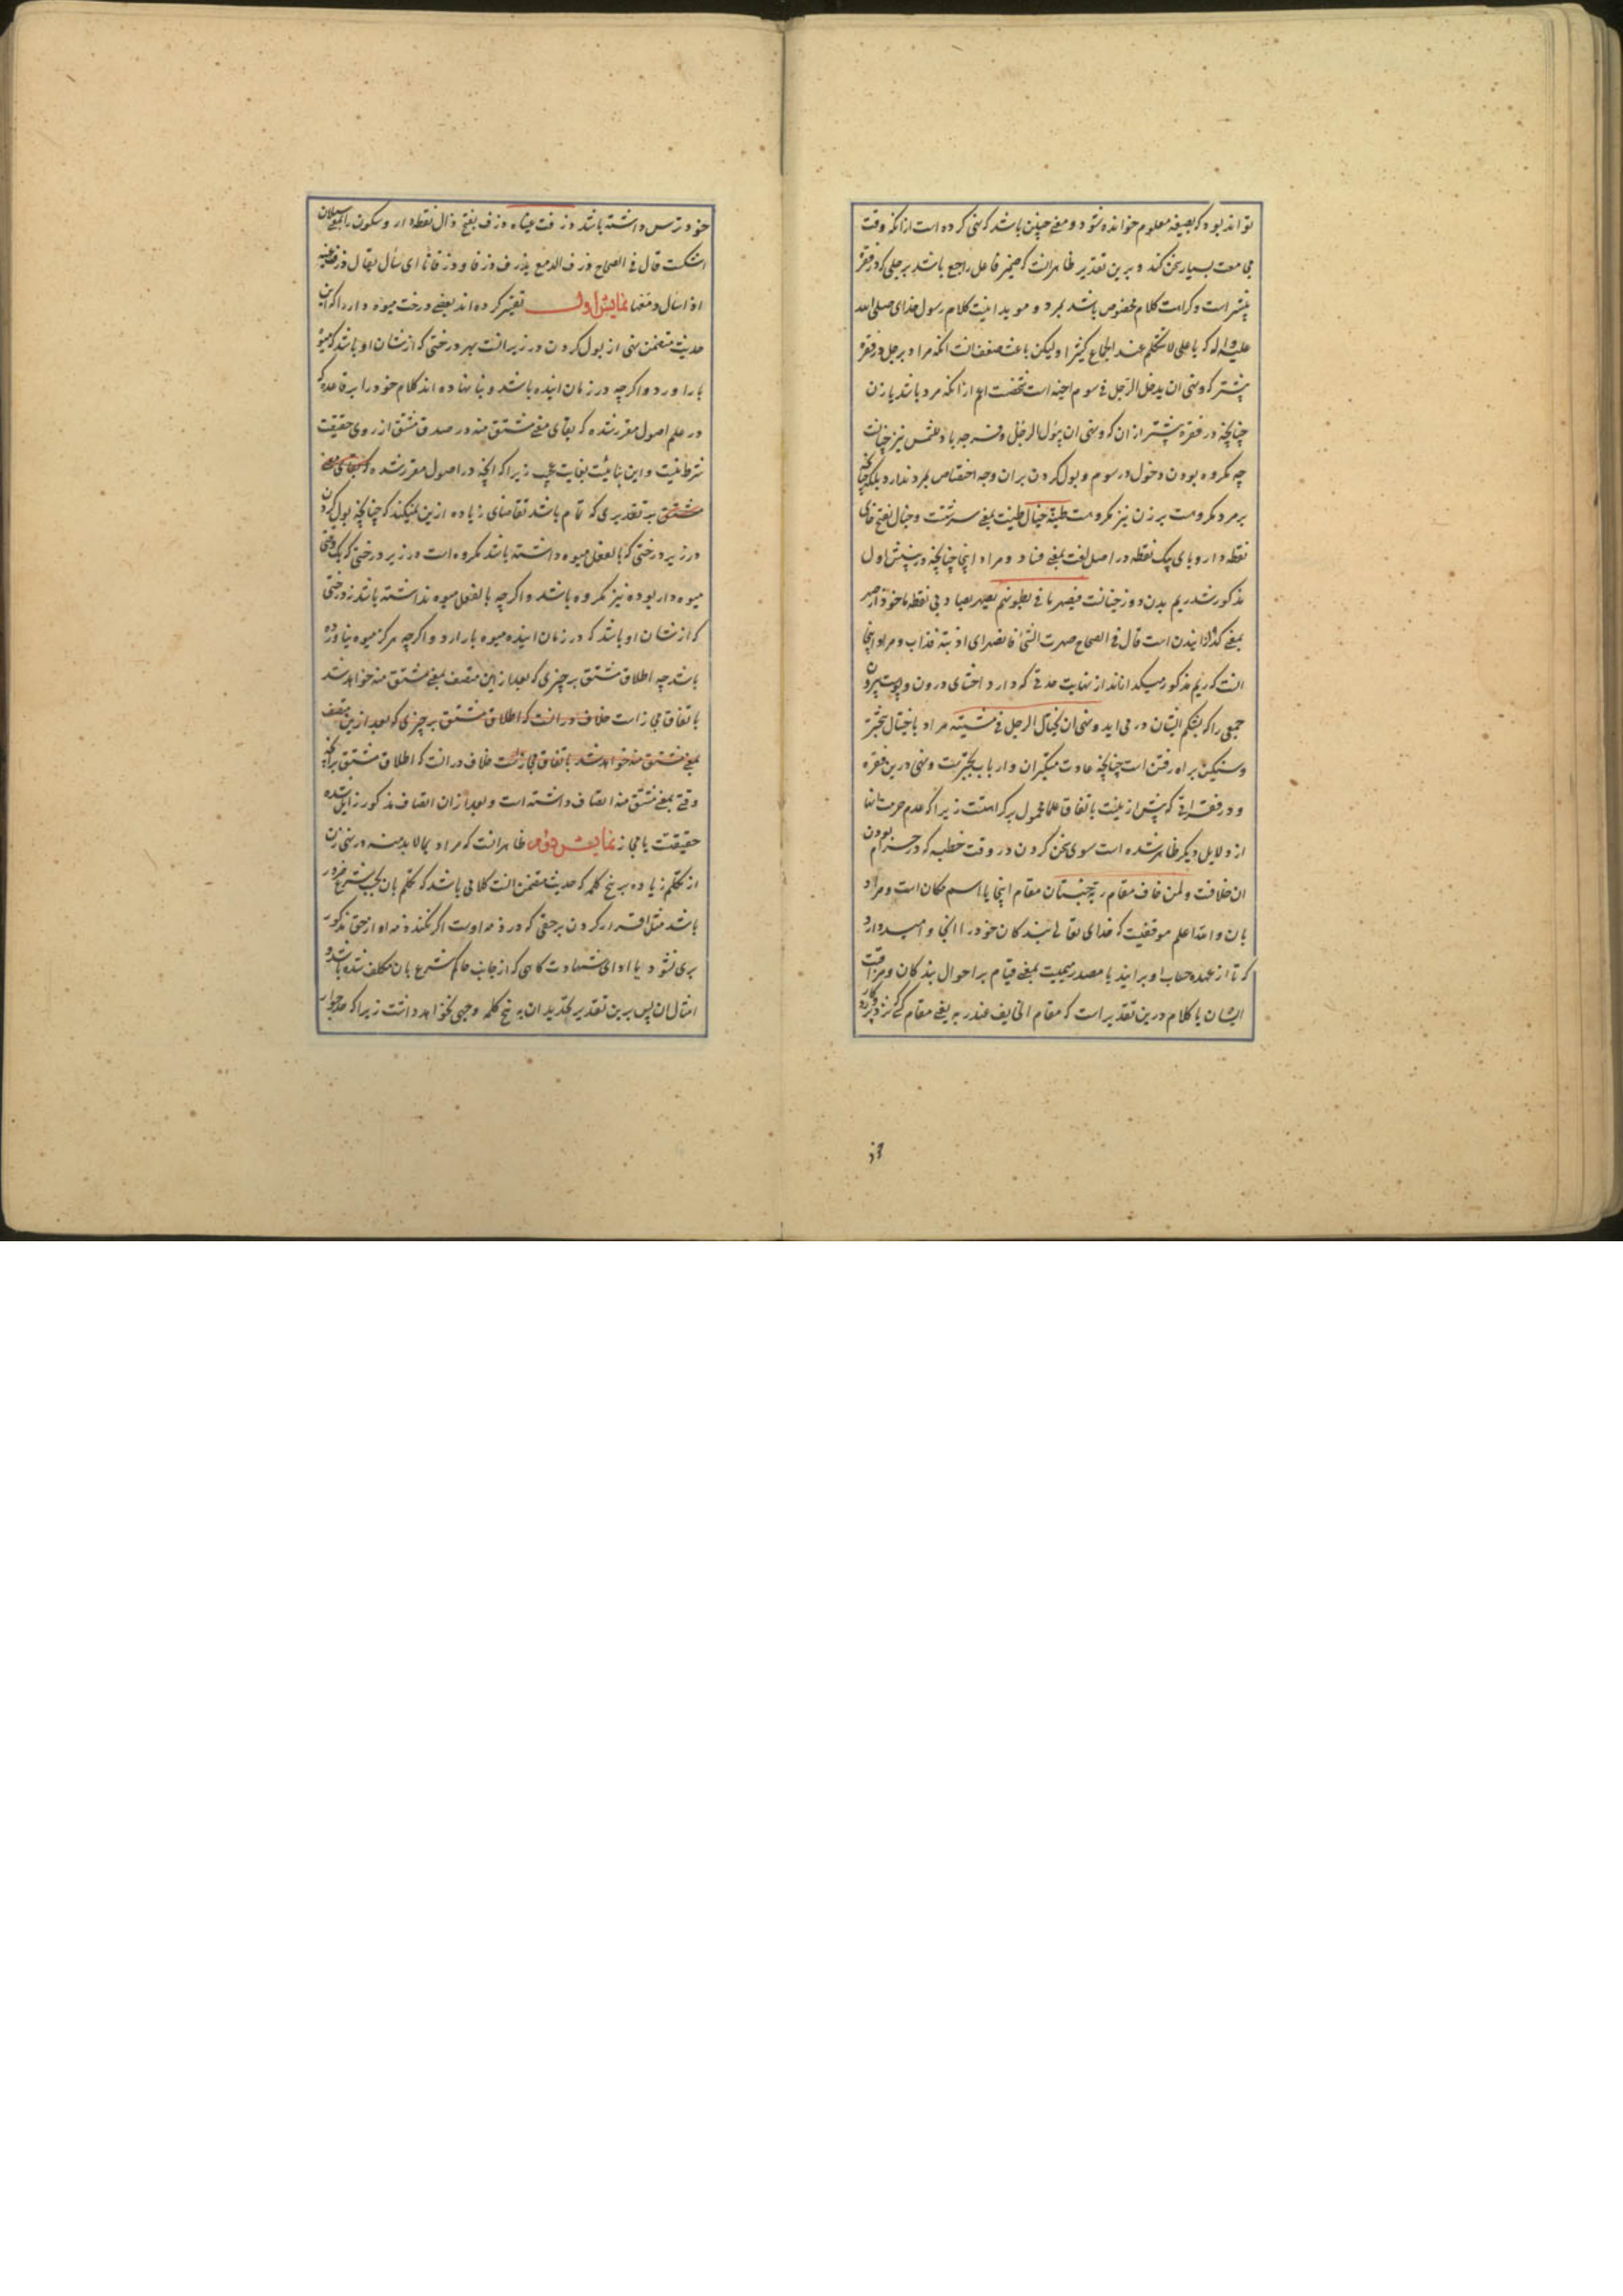 تواند بود که بصیغه معلوم خوانده شود و معنی چنین باشد که نهی کرده است از انکه وقت
مجامعت بسیار سخن کند و برین تقدیر ظاهرانست که ضمیر فاعل راجع باشد برجلی که در فقره
پیشتر است و کراهت کلام مخصوص باشد بمرد و موید اینست کلام رسول خدای صلی الله
علیه واله که یا علی لا تتکلم عند الجماع کثیرا ولیکن باعث ضعف انست انکه مراد برجل در فقره
پیشتر که ونهی ان یدخل الرجل فی سوم اخیه است شخصیت اعم از انکه مرد باشد یا زن
چنانچه در فقره پیشتر از ان که ونهی ان یبول الرجل وفرجه باد للشمس نیز چنانست
چه مکروه بودن دخول در سوم و بول کردن بران وجه اختصاص بمرد ندارد بلکه چنانچه
بر مرد مکروهست بر زن نیز مکروهست طینة خبال طینت بمعنی سرشتست و خبال بفتح خای
نقطه دار و بای یک نقطه در اصل لغت بمعنی فساد و مراد اینجا چنانچه در بینش اول
مذکور شد ریم بدن دوزخیانست فیصهر ما فی بطونهم یصهر بصاد بی نقطه ماخوذ از صهر
بمعنی گدازانیدن است قال فی الصحاح صهرت الشئ فانصهر ای اذبته فذاب و مراد اینجا
انست که ریم مذکور میگدازاند از نهایت حدتی که دارد احشای درون و پوست بیرون
جمعی را که بشکم ایشان در می اید ونهی ان یختال الرجل فی مشیته مراد باختیال تبختر
و سنگین براه رفتن است چنانچه عادت متکبران و ارباب تجبرست و نهی درین فقره
و در فقراتی که پیش ازینست باتفاق علما محمول بر کراهتست زیرا که عدم حرمت انها
از دلایل دیگر ظاهر شده است سوی سخن کردن در وقت خطبه که در حرام بودن
ان خلافست ولمن خاف مقام ربه جنتان مقام اینجا یا اسم مکان است و مراد
بان والله اعلم موقفیست که خدای تعالی بندگان خود را انجا وا میدارد
که تا از عهده حساب او برایند یا مصدر میمیست بمعنی قیام بر احوال بندگان و مراقبت
ایشان یا کلام درین تقدیر است که مقام الخایف عند ربه یعنی مقام کسی که نزد پروردگار
خود ترس داشته باشد ذرفت عیناه ذرف بفتح ذال نقطه دار و سکون را بمعنی سیلان
اشکست قال فی الصحاح ذرف الدمع یذرف ذرفا و ذرفانا ای سال یقال ذرفت عینه
اذا سال دمعها نمایش اول تفسیر کرده اند بعضی درخت میوه دار را که این
حدیث متضمن نهی از بول کردن در زیر انست بهر درختی که از شان او باشد که میوه
بار اورد و اگرچه در زمان اینده باشد و بنا نهاده اند کلام خود را بر قاعده که
در علم اصول مقرر شده که بقای معنی مشتق منه در صدق مشتق از روی حقیقت
شرط نیست و این بنائیست بغایت عجب زیرا که انچه در اصول مقرر شده که بقای معنی
مشتق بر تقدیری که تمام باشد تقاضای زیاده ازین نمیکند که چنانچه بول کردن
در زیر درختی که بالفعل میوه داشته باشد مکروه است در زیر درختی که یک وقتی
میوه دار بوده نیز مکروه باشد و اگرچه بالفعل میوه نداشته باشد نه درختی
که از شان او باشد که در زمان اینده میوه بار ارد و اگرچه هرگز میوه نیاورده
باشد چه اطلاق مشتق بر چیزی که بعد ازین متصف بمعنی مشتق منه خواهد شد
باتفاق مجاز است خلاف در انست که اطلاق مشتق بر چیزی که بعد ازین متصف
بمعنی مشتق منه خواهد شد باتفاق مجاز است خلاف در انست که اطلاق مشتق برانچه
وقتی بمعنی مشتق منه اتصاف داشته است و بعد از ان اتصاف مذکور زایل شده
حقیقتست یا مجاز نمایش دوم ظاهرانست که مراد بما لا بد منه در نهی زن
از تکلم زیاده بر پنج کلمه که حدیث متضمن انست کلامی باشد که تکلم بان بحسب شرع ضرور
باشد مثل اقرار کردن بر حقی که در ذمه اوست اگر نکند ذمه او از حق مذکور
بری نشود یا ادای شهادت گاهی که از جانب حاکم شرع بان مکلف شده باشد و
امثال ان پس برین تقدیر تحدید ان به پنج کلمه وجهی نخواهد داشت زیرا که جواز